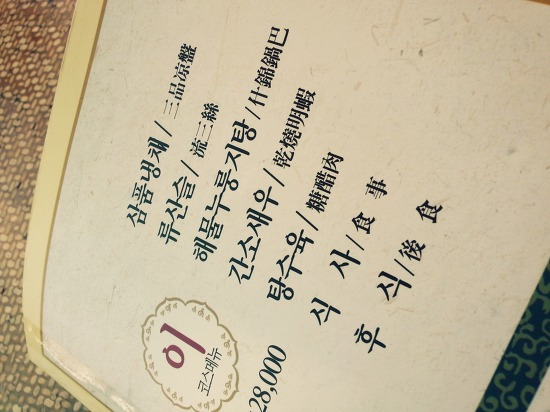 이
코스메뉴
28,000
삼품냉채/三品凉盤
류산슬/流三絲
해물누룽지탕/什錦鍋巴
간소새우/乾燒明蝦
탕수육/糖醋肉
식 사/食 事
후 식/後 食